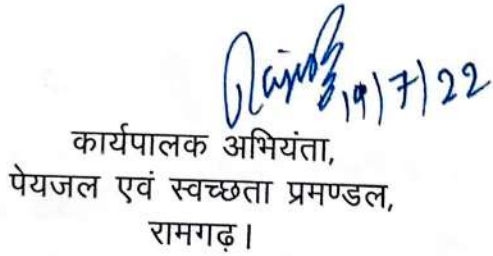 19/7/22
कार्यपालक अभियंता,
पेयजल एवं स्वच्छता प्रमण्डल,
रामगढ़।